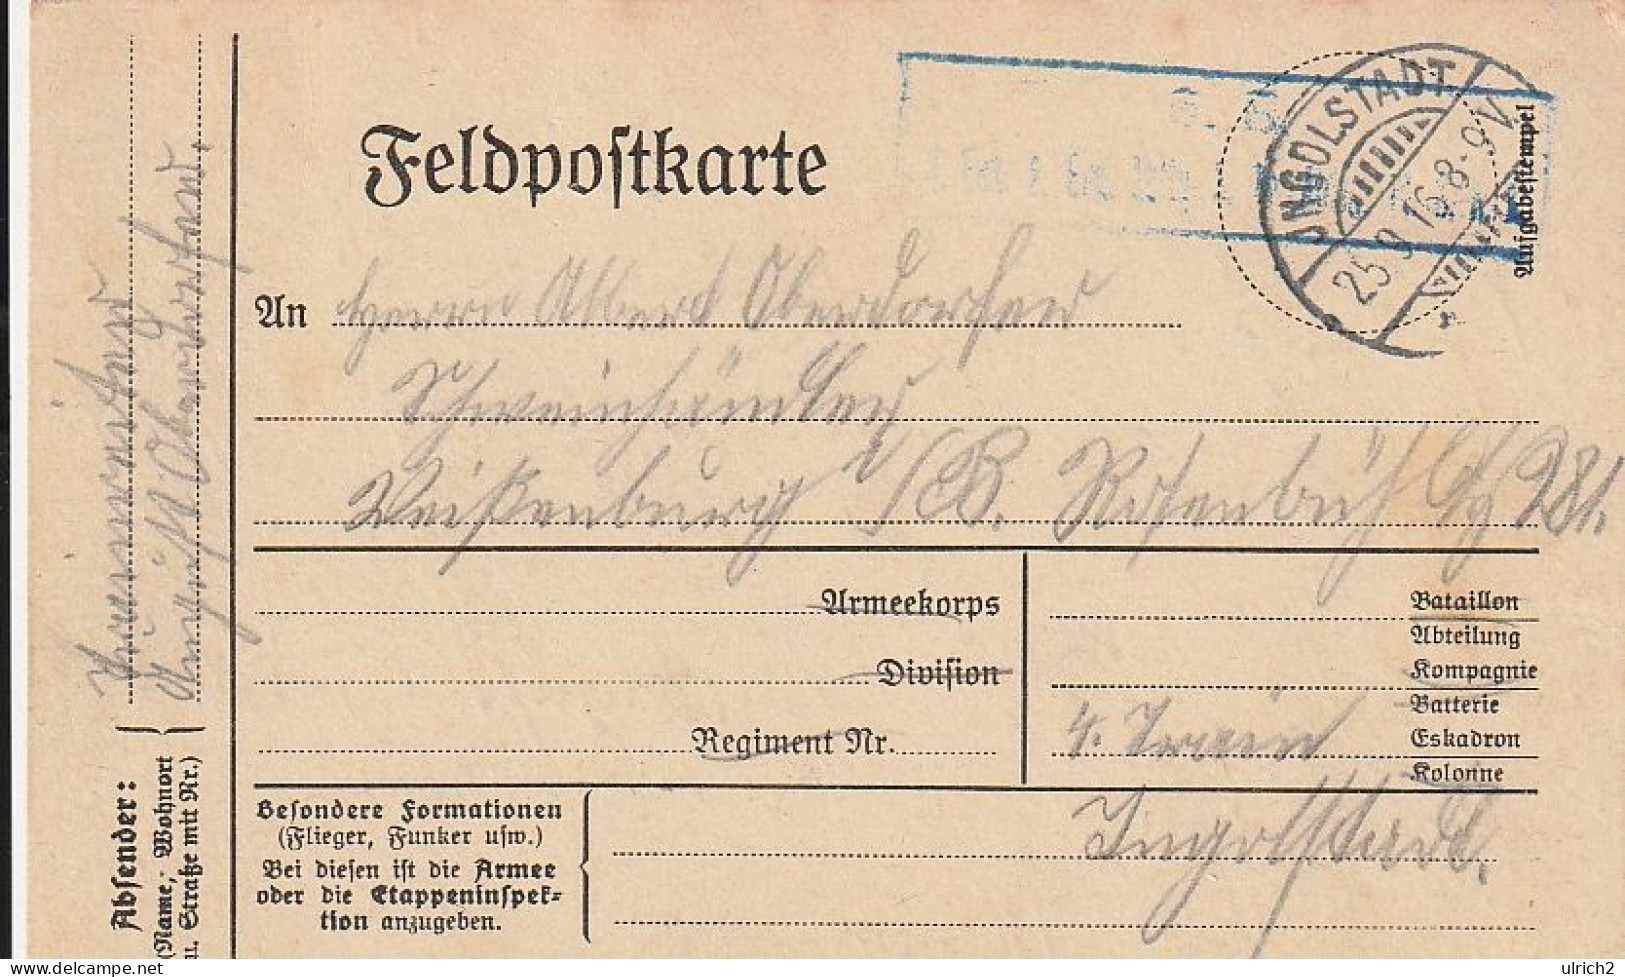 Feldpostkarte
INGOLSTADT
25 9 16 8-9 V
Aufgabestempel
An Herrn Albert Oberdorfer
Schweinhändler
Weißenburg i/B. Rosenbühl Hg 281.
Armeekorps
Division
Regiment Nr.
Bataillon
Abteilung
Kompagnie
Batterie
Eskadron
Kolonne
4. Train
Ingolstadt.
Besondere Formationen
(Flieger, Funker usw.)
Bei diesen ist die Armee
oder die Etappeninspek-
tion anzugeben.
Absender:
(Name, Wohnort
u. Straße mit Nr.)
Oberdorfer
delcampe.net
ulrich2